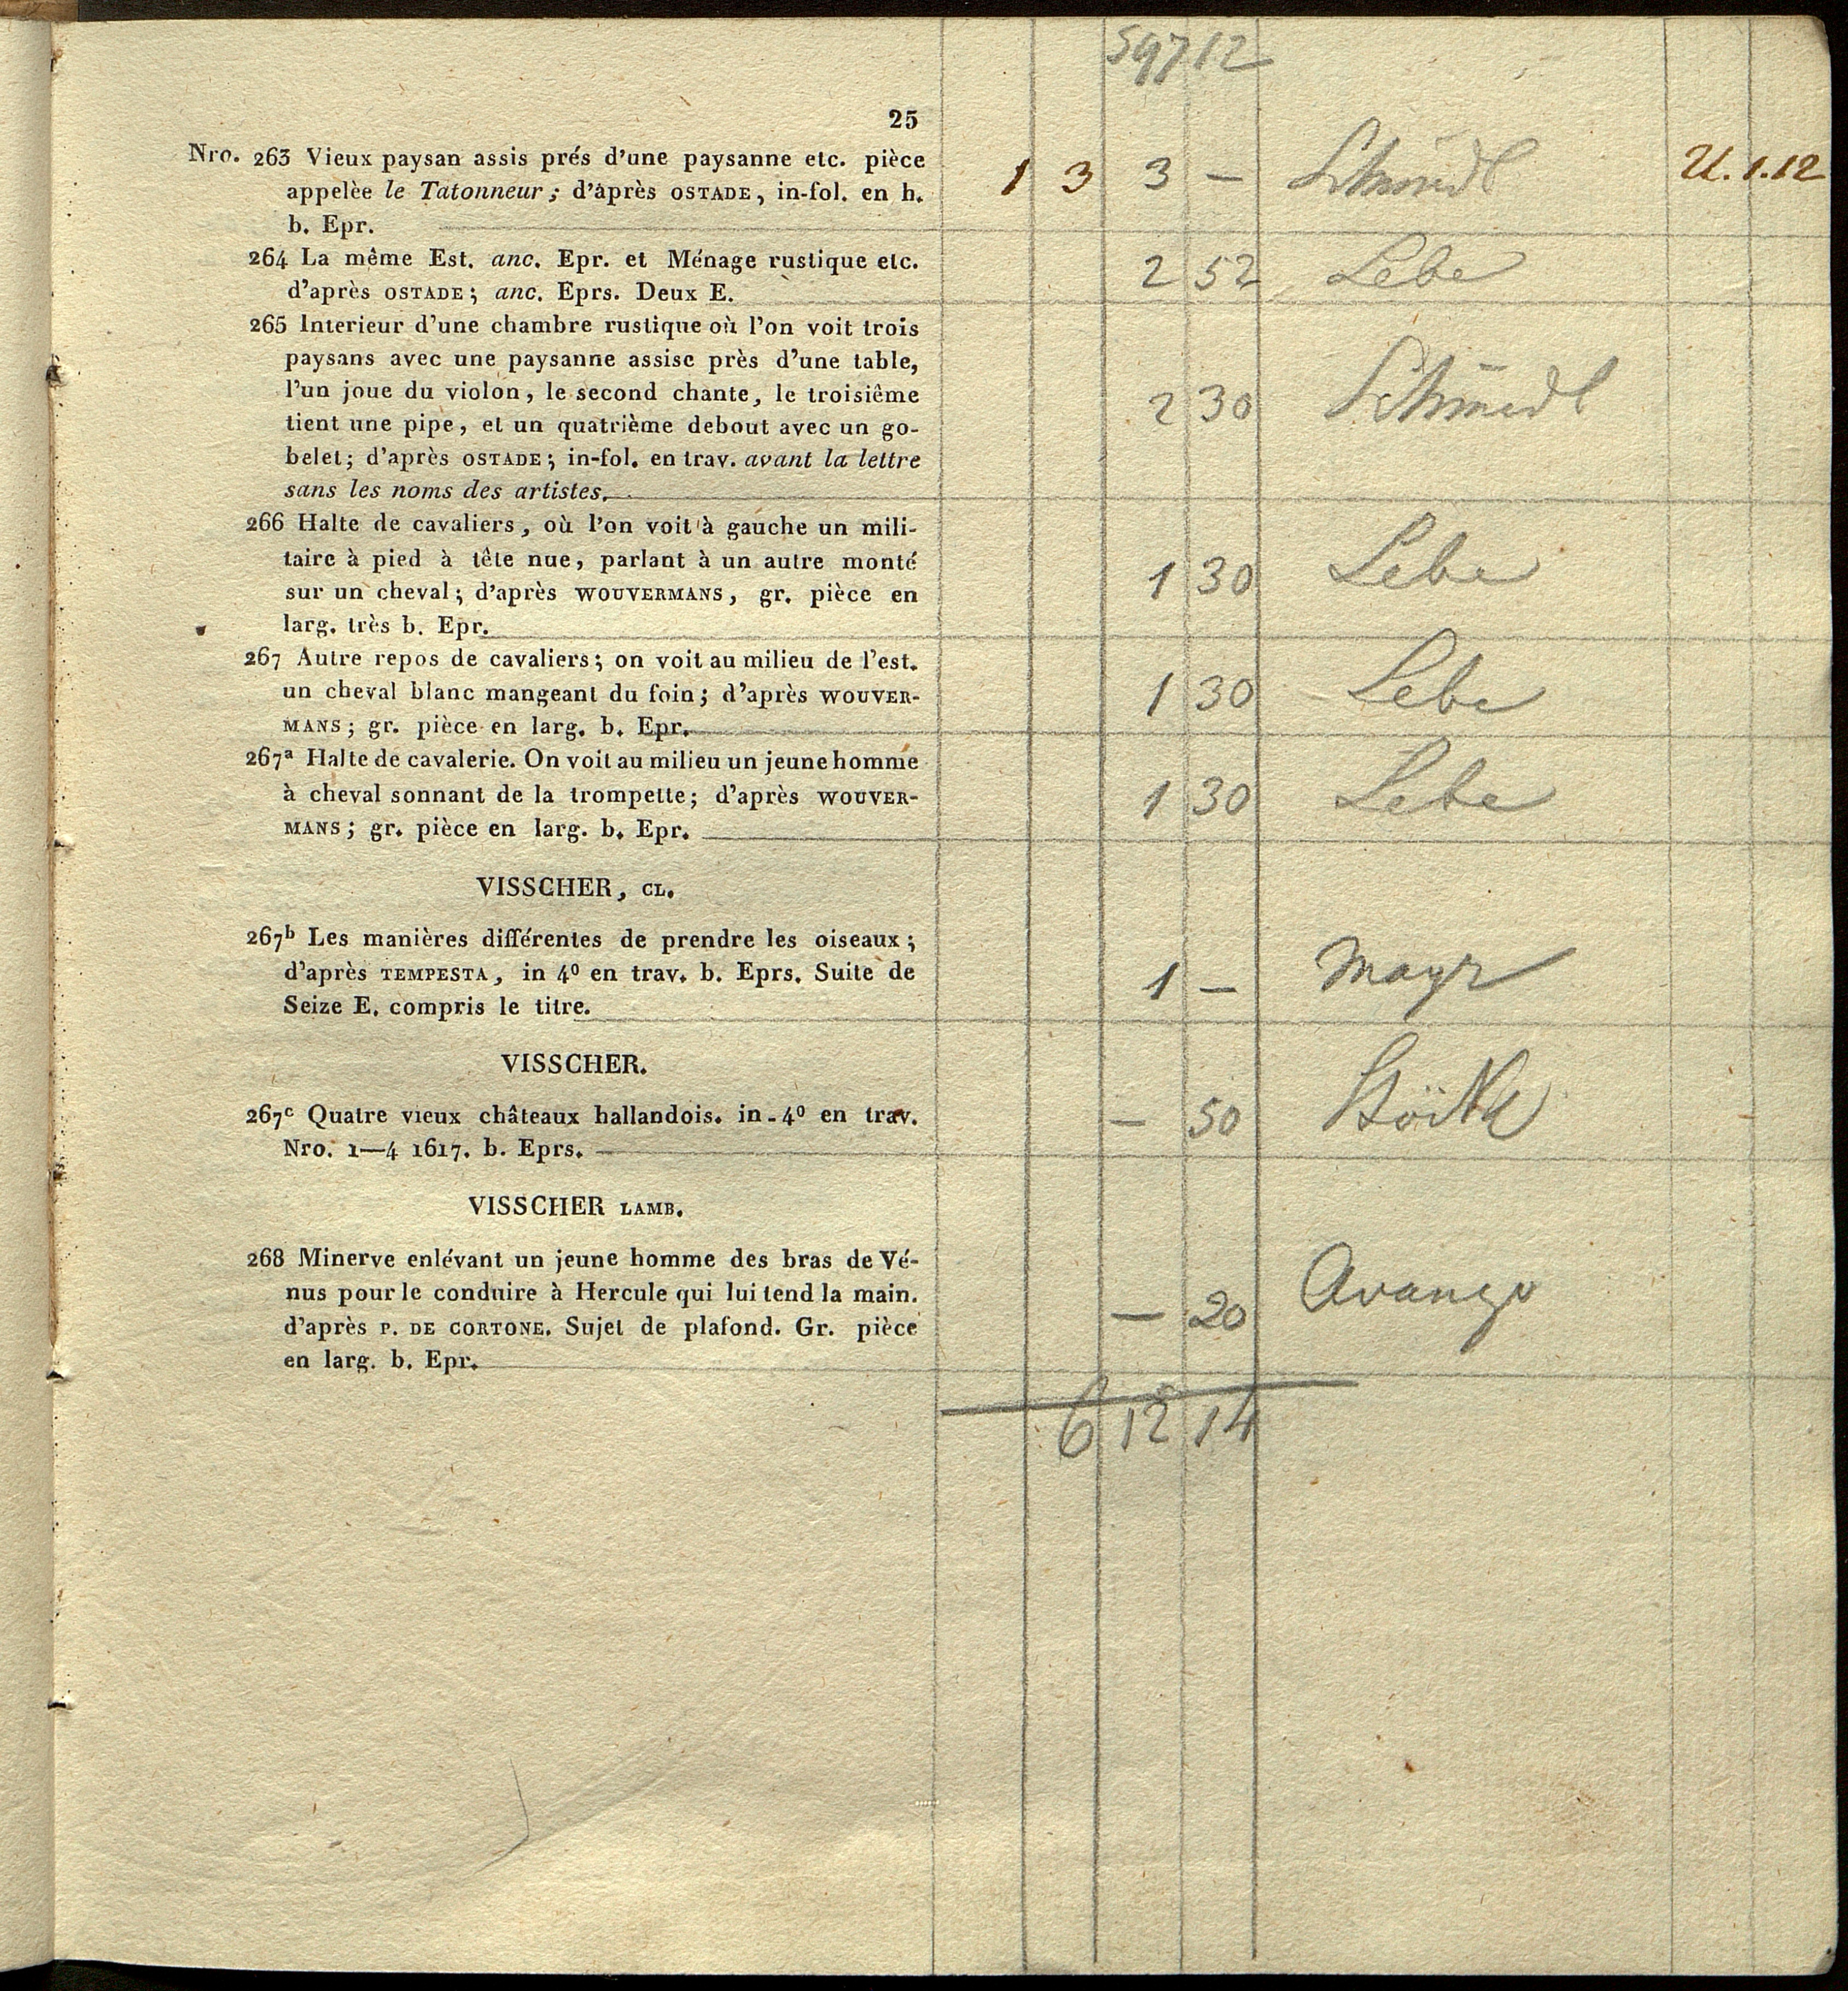 597 12
25
Nro. 263 Vieux paysan assis prés d'une paysanne etc. pièce 1 3 3 — Schmidt U. 1.12
appelèe le Tatonneur; d'après OSTADE, in-fol. en h.
b. Epr.
264 La même Est. anc. Epr. et Ménage rustique etc. 2 52 Lebe
d'après OSTADE; anc. Eprs. Deux E.
265 Interieur d'une chambre rustique où l'on voit trois
paysans avec une paysanne assise près d'une table,
l'un joue du violon, le second chante, le troisiême 2 30 Schmidt
tient une pipe, et un quatrième debout avec un go-
belet; d'après OSTADE; in-fol. en trav. avant la lettre
sans les noms des artistes.
266 Halte de cavaliers, où l'on voit à gauche un mili-
taire à pied à tête nue, parlant à un autre monté 1 30 Lebe
sur un cheval; d'après WOUVERMANS, gr. pièce en
larg. très b. Epr.
267 Autre repos de cavaliers; on voit au milieu de l'est.
un cheval blanc mangeant du foin; d'après WOUVER- 1 30 Lebe
MANS; gr. pièce en larg. b. Epr.
267a Halte de cavalerie. On voit au milieu un jeune homme
à cheval sonnant de la trompette; d'après WOUVER- 1 30 Lebe
MANS; gr. pièce en larg. b. Epr.
VISSCHER, CL.
267b Les manières différentes de prendre les oiseaux;
d'après TEMPESTA, in 4º en trav. b. Eprs. Suite de 1 — Mayr
Seize E. compris le titre.
VISSCHER.
267c Quatre vieux châteaux hallandois. in-4º en trav. — 50
Nro. 1—4 1617. b. Eprs.
VISSCHER LAMB.
268 Minerve enlévant un jeune homme des bras de Vé-
nus pour le conduire à Hercule qui lui tend la main. — 20 Avango
d'après P. DE CORTONE. Sujet de plafond. Gr. pièce
en larg. b. Epr.
6 12 14